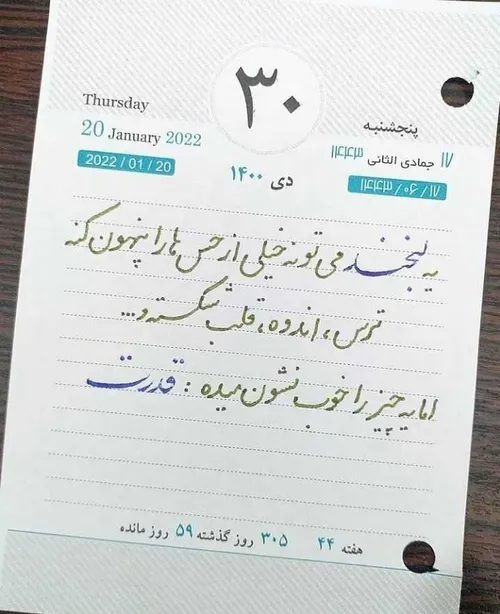 ۳۰
Thursday
20 January 2022
2022 / 01 / 20
دی ۱۴۰۰
پنجشنبه
۱۷ جمادی الثانی ۱۴۴۳
۱۴۴۳ / ۰۶ / ۱۷
یه لبخند می تونه خیلی از حس ها را پنهون کنه
ترس، اندوه، قلب شکسته و...
اما یه چیز را خوب نشون میده : قدرت
هفته ۴۴ ۳۰۵ روز گذشته ۵۹ روز مانده